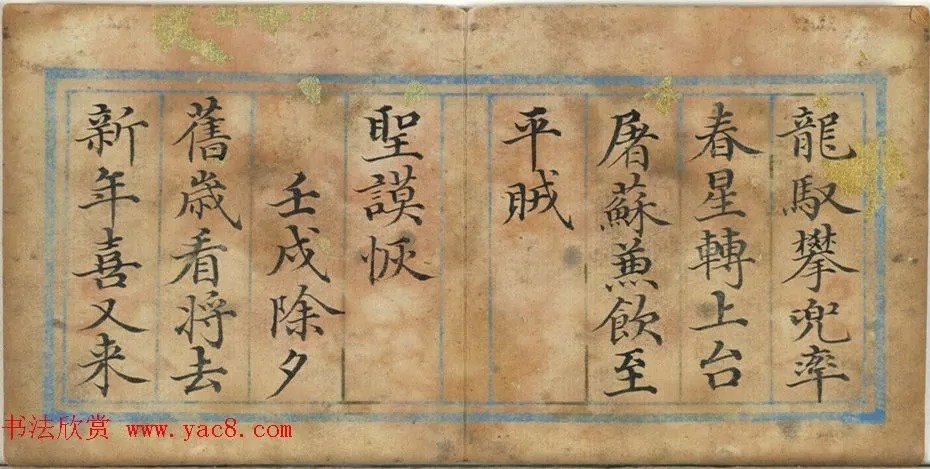 龍馭攀兜率
春星轉上台
屠蘇兼飲至
平賊
聖謨恢
壬戌除夕
舊歲看将去
新年喜又来
书法欣赏 www.yac8.com